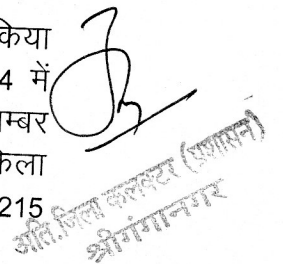 किया
4 में
म्बर
केला
215
अति.जिला कलक्टर (प्रशासन)
श्रीगंगानगर